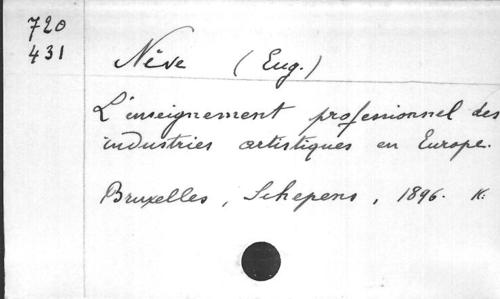 720
431
Nève (Eug.)
L'enseignement professionnel des
industries artistiques en Europe.
Bruxelles, Schepens, 1896. K.